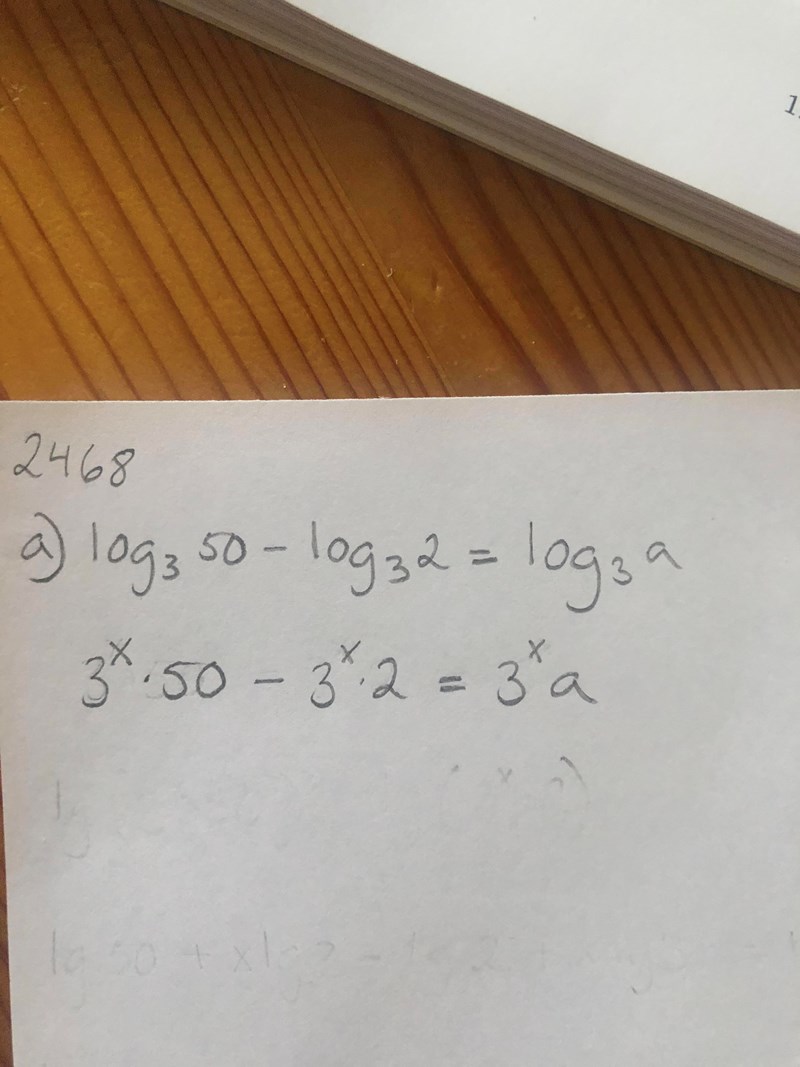 1.
2468
a) log₃ 50 - log₃ 2 = log₃ a
3ˣ · 50 - 3ˣ · 2 = 3ˣ a